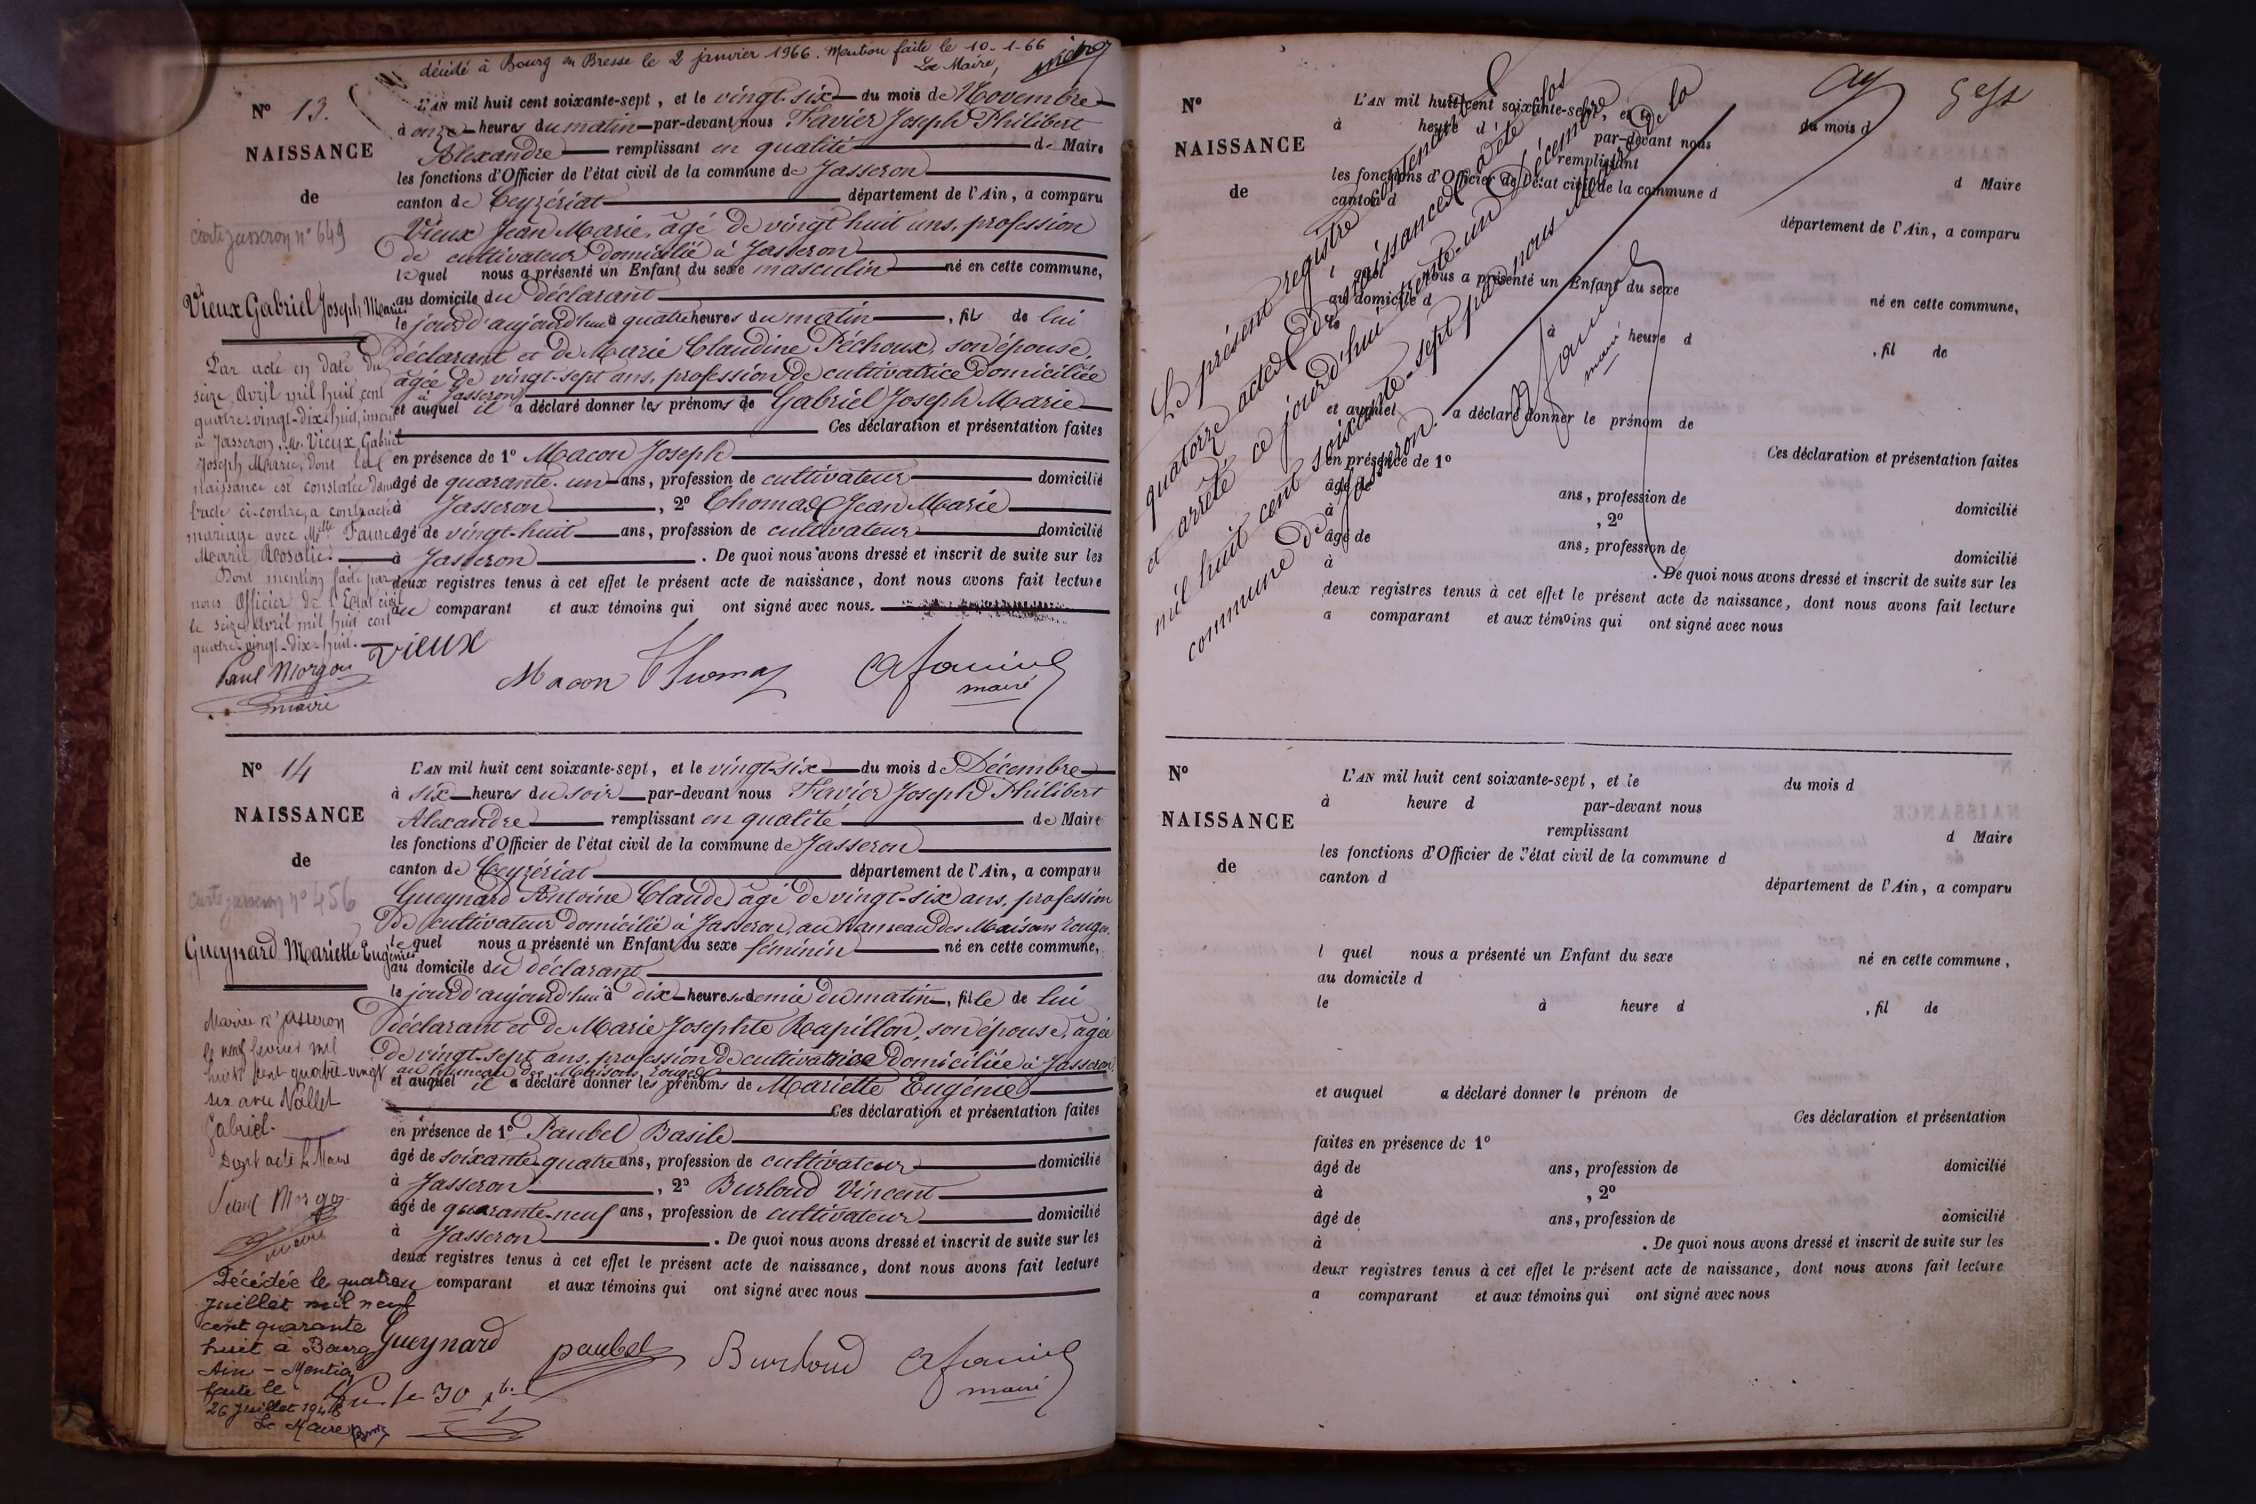 décédé à Bourg en Bresse le 2 janvier 1966. Mention faite le 10-1-66
Le Maire,
N° 13.
NAISSANCE
de
carte Jasseron n° 649
Vieux Gabriel Joseph Marie
Par acte en date du
seize Avril mil huit cent
quatre-vingt-dix-huit, inscrit
à Jasseron, Mr. Vieux Gabriel
Joseph Marie, dont la
naissance est constatée dans
l'acte ci-contre, a contracté
mariage avec Melle Faure
Marie Rosalie.
Dont mention faite par
nous Officier de l'Etat civil
le seize Avril mil huit cent
quatre-vingt-dix-huit.
Paul Morgon
maire
L'AN mil huit cent soixante-sept, et le vingt-six du mois de Novembre
à onze heures du matin par-devant nous Favier Joseph Philibert
Alexandre remplissant en qualité de Maire
les fonctions d'Officier de l'état civil de la commune de Jasseron
canton de Ceyzériat département de l'Ain, a comparu
Vieux Jean Marie, âgé de vingt huit ans, profession
de cultivateur domicilié à Jasseron
lequel nous a présenté un Enfant du sexe masculin né en cette commune,
au domicile du déclarant
le jour d'aujourd'hui à quatre heures du matin, fils de lui
déclarant et de Marie Claudine Péchoux, son épouse,
âgée de vingt-sept ans, profession de cultivatrice domiciliée
à Jasseron
et auquel il a déclaré donner les prénoms de Gabriel Joseph Marie
Ces déclaration et présentation faites
en présence de 1° Macon Joseph
âgé de quarante-un ans, profession de cultivateur domicilié
à Jasseron, 2° Thomas Jean Marie
âgé de vingt-huit ans, profession de cultivateur domicilié
à Jasseron. De quoi nous avons dressé et inscrit de suite sur les
deux registres tenus à cet effet le présent acte de naissance, dont nous avons fait lecture
au comparant et aux témoins qui ont signé avec nous.
Vieux
Macon Thomas
maire
N° 14
NAISSANCE
de
carte Jasseron n° 456
Gueynard Mariette Eugénie
Mariée à Jasseron
le neuf février mil
huit cent quatre-vingt
six avec Nallet
Gabriel.
Dont acte le Maire
Paul Morgon
maire
Décédée le quatre
juillet mil neuf
cent quarante
huit à Bourg
Ain - Mention
faite le
26 juillet 1948
Le Maire
L'AN mil huit cent soixante-sept, et le vingt-six du mois de Décembre
à six heures du soir par-devant nous Favier Joseph Philibert
Alexandre remplissant en qualité de Maire
les fonctions d'Officier de l'état civil de la commune de Jasseron
canton de Ceyzériat département de l'Ain, a comparu
Gueynard Antoine Claude âgé de vingt-six ans, profession
de cultivateur domicilié à Jasseron, au hameau des Maisons rouges.
lequel nous a présenté un Enfant du sexe féminin né en cette commune,
au domicile du déclarant
le jour d'aujourd'hui à dix heures et demie du matin, fille de lui
déclarant et de Marie Josephte Rapillon, son épouse, âgée
de vingt-sept ans, profession de cultivatrice domiciliée à Jasseron
au hameau des Maisons rouges
et auquel il a déclaré donner les prénoms de Mariette Eugénie
Ces déclaration et présentation faites
en présence de 1° Paubel Basile
âgé de soixante-quatre ans, profession de cultivateur domicilié
à Jasseron, 2° Burloud Vincent
âgé de quarante-neuf ans, profession de cultivateur domicilié
à Jasseron. De quoi nous avons dressé et inscrit de suite sur les
deux registres tenus à cet effet le présent acte de naissance, dont nous avons fait lecture
au comparant et aux témoins qui ont signé avec nous
Gueynard paubel Burloud
maire
N°
NAISSANCE
de
L'AN mil huit cent soixante-sept, et le du mois d
à heure d par-devant nous
remplissant d Maire
les fonctions d'Officier de l'état civil de la commune d
canton d département de l'Ain, a comparu
l quel nous a présenté un Enfant du sexe né en cette commune,
au domicile d
le à heure d , fil de
et auquel a déclaré donner le prénom de
Ces déclaration et présentation faites
en présence de 1°
âgé de ans, profession de domicilié
à , 2°
âgé de ans, profession de domicilié
à . De quoi nous avons dressé et inscrit de suite sur les
deux registres tenus à cet effet le présent acte de naissance, dont nous avons fait lecture
a comparant et aux témoins qui ont signé avec nous
Le présent registre contenant
quatorze actes de naissances a été clos
et arrêté ce jourd'hui trente-un Décembre
mil huit cent soixante-sept par nous Maire de la
commune de Jasseron.
maire
N°
NAISSANCE
de
L'AN mil huit cent soixante-sept, et le du mois d
à heure d par-devant nous
remplissant d Maire
les fonctions d'Officier de l'état civil de la commune d
canton d département de l'Ain, a comparu
l quel nous a présenté un Enfant du sexe né en cette commune,
au domicile d
le à heure d , fil de
et auquel a déclaré donner le prénom de
Ces déclaration et présentation
faites en présence de 1°
âgé de ans, profession de domicilié
à , 2°
âgé de ans, profession de domicilié
à . De quoi nous avons dressé et inscrit de suite sur les
deux registres tenus à cet effet le présent acte de naissance, dont nous avons fait lecture
a comparant et aux témoins qui ont signé avec nous